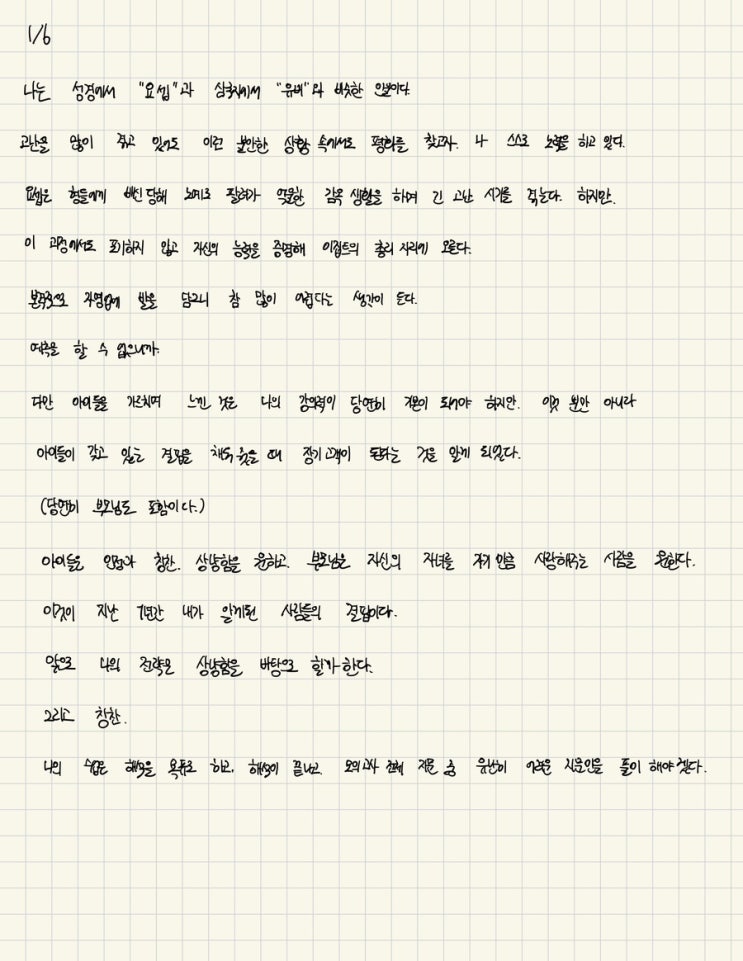 1/6
나는 성경에서 "요셉"과 삼국지에서 "유비"와 비슷한 인물이다.
고난을 많이 겪고 있어도 이런 불안한 상황 속에서도 평화를 찾고자. 나 스스로 노력을 하고 있다.
요셉은 형들에게 배신 당해 노예로 팔려가 억울한 감옥 생활을 하며 긴 고난 시기를 겪는다. 하지만.
이 과정에서도 포기하지 않고 자신의 능력을 증명해 이집트의 총리 자리에 오른다.
본격적으로 자영업에 발을 담그니 참 많이 어렵다는 생각이 든다.
예측을 할 수 없으니까.
다만 아이들을 가르치며 느낀 것은 나의 강의력이 당연히 기본이 되어야 하지만. 이것 뿐만 아니라
아이들이 갖고 있는 결핍을 채워 줬을 때 정기고객이 된다는 것을 알게 되었다.
(당연히 부모님도 포함이다.)
아이들은 인정과 칭찬. 상냥함을 원하고. 부모님은 자신의 자녀를 자기 만큼 사랑해주는 사람을 원한다.
이것이 지난 7년간 내가 알게된 사람들의 결핍이다.
앞으로 나의 전략은 상냥함을 바탕으로 할까 한다.
그리고 칭찬.
나의 수업은 해석을 위주로 하고. 해석이 끝나고 모의고사 전체 지문 중 유난히 어려운 지문만을 풀이 해야겠다.